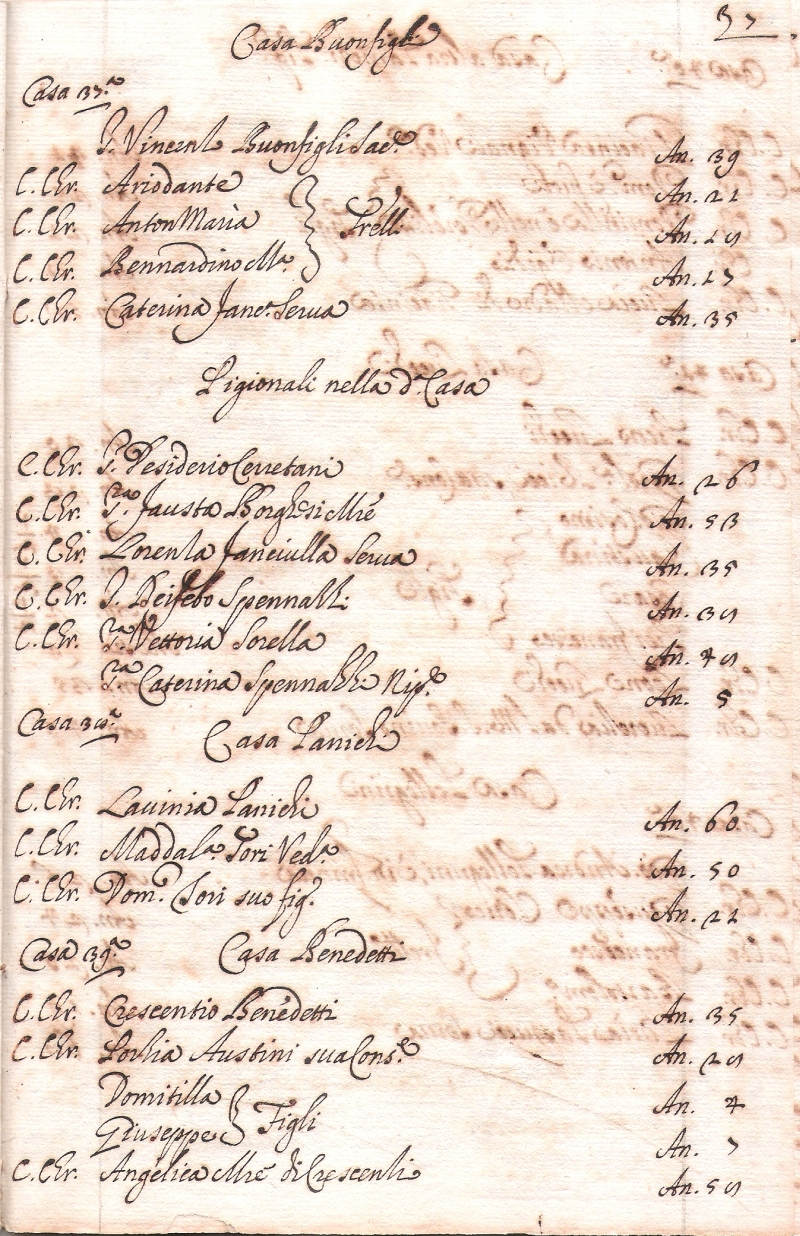 37
Casa Buonfigli
Casa 37.a
S. Vincenzo Buonfigli Sac.e An. 39
C. Chr. Ariodante An. 21
C. Chr. Anton Maria } Frelli An. 19
C. Chr. Bernardino Ma. An. 17
C. Chr. Caterina Serva An. 35
Pigionali nella d.a Casa
C. Chr. S. Desiderio Cerretani An. 26
C. Chr. S.ra Fausta Borghesi Mre An. 53
C. Chr. Lorenza Fanciulla Serva An. 35
C. Chr. S. Deifebo Spennazzi An. 39
C. Chr. S.ra Vettoria Sorella An. 49
S.ra Caterina Spennazzi Nip.e An. 5
Casa 38.a Casa Panichi
C. Chr. Lavinia Panichi An. 60
C. Chr. Maddal.a Tori Ved.a An. 50
C. Chr. Dom.o Tori suo fig.o An. 21
Casa 39.a Casa Benedetti
C. Chr. Crescentio Benedetti An. 35
C. Chr. Austini sua Cons.e An. 29
Domitilla An. 4
Giuseppe } Figli An. 7
C. Chr. Angelica Mre di Crescentio An. 59